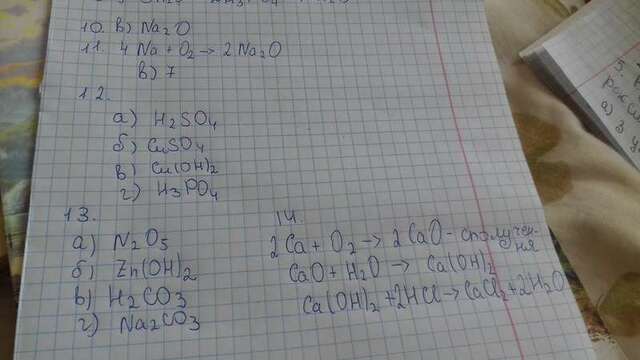 10. в) Na₂O
11. 4 Na + O₂ → 2 Na₂O
в) 7
12.
а) H₂SO₄
б) CuSO₄
в) Cu(OH)₂
г) H₃PO₄
13.
а) N₂O₅
б) Zn(OH)₂
в) H₂CO₃
г) Na₂CO₃
14.
2Ca + O₂ → 2CaO - сполучен-
ня
CaO + H₂O → Ca(OH)₂
Ca(OH)₂ + 2HCl → CaCl₂ + 2H₂O
5.
а) З у